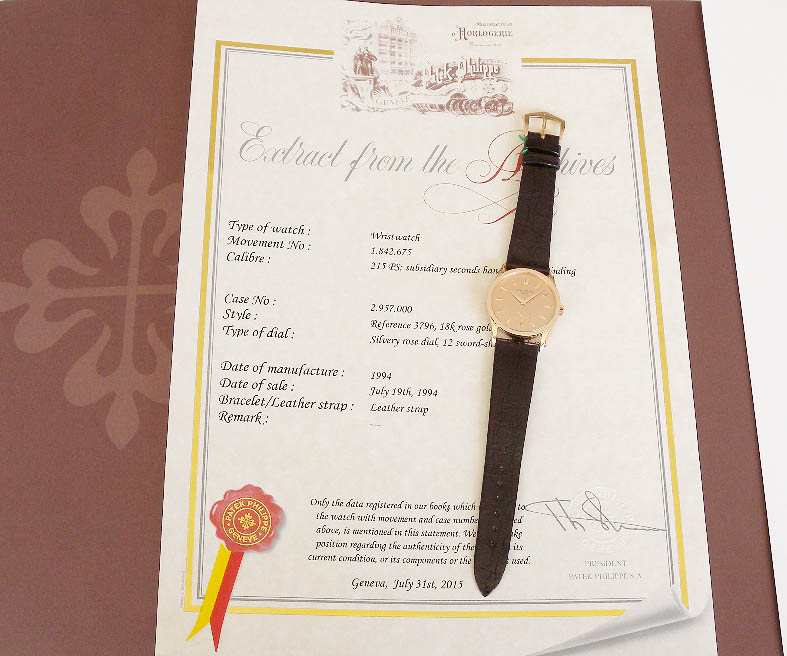 Manufacture
d'Horlogerie
Patek Philippe
GENÈVE
Extract from the Archives
Type of watch : Wristwatch
Movement No : 1.842.675
Calibre : 215 PS: subsidiary seconds hand winding
Case No : 2.957.000
Style : Reference 3796, 18k rose gold
Type of dial : Silvery rose dial, 12 sword-sh
Date of manufacture : 1994
Date of sale : July 19th, 1994
Bracelet/Leather strap : Leather strap
Remark : ---
Only the data registered in our books which to
the watch with movement and case number
above, is mentioned in this statement. We
position regarding the authenticity of the its
current condition, or its components or the used.
Geneva, July 31st, 2015
PATEK PHILIPPE
GENEVE
PRESIDENT
PATEK PHILIPPE S.A.